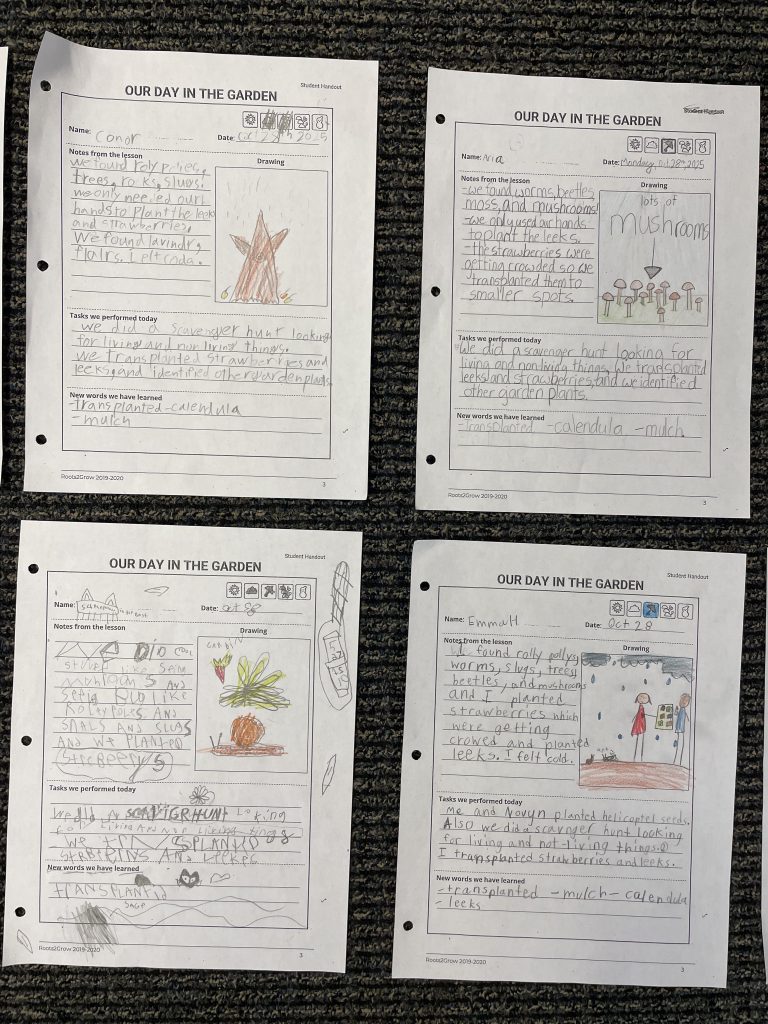 Student Handout
OUR DAY IN THE GARDEN
Name: Conor
Date: Oct 28th 2025
Notes from the lesson
Drawing
we found roly polies,
trees, rocks, slugs.
we only needed our
hands to plant the leek
and strawberries.
We found lavindr,
I felt
Tasks we performed today
we did a scavenger hunt looking
for living and non living things.
we transplanted strawberries and
leeks, and identified other garden plants
New words we have learned
-transplanted -calendula
- mulch
Roots2Grow 2019-2020
3
Student Handout
OUR DAY IN THE GARDEN
Name: Aria
Date: Monday, Oct 28th 2025
Notes from the lesson
Drawing
-we found worms, beetles,
moss, and mushrooms!
-we only used our hands
to plant the leeks.
-the strawberries were
getting crowded so we
transplanted them to
smaller spots.
lots of
mushrooms
Tasks we performed today
We did a scavenger hunt looking for
living and nonliving things. We transplanted
leeks and strawberries, and we identified
other garden plants.
New words we have learned
-transplanted -calendula -mulch
Roots2Grow 2019-2020
3
Student Handout
OUR DAY IN THE GARDEN
Name:
Date: oct
Notes from the lesson
Drawing
DiD COOL
LIKE
AND
LIKE
AND
AND SLUGS
AND WE PLANTED
Tasks we performed today
We did
LIVING AND
WE
AND LEEKES
New words we have learned
TRANSPLANTID
SAGE
Roots2Grow 2019-2020
3
Student Handout
OUR DAY IN THE GARDEN
Name: Emma H
Date: Oct 28
Notes from the lesson
Drawing
We found rolly pollys
worms, slugs, trees,
beetles, and mushrooms
and I planted
strawberries which
were getting
crowed and planted
leeks. I felt cold.
Tasks we performed today
Me and Novyn planted helicoptel seeds.
Also we did a scavnger hunt looking
for living and not-living things.
I transplanted strawberries and leeks.
New words we have learned
-transplanted -mulch- calendula
- leeks
Roots2Grow 2019-2020
3